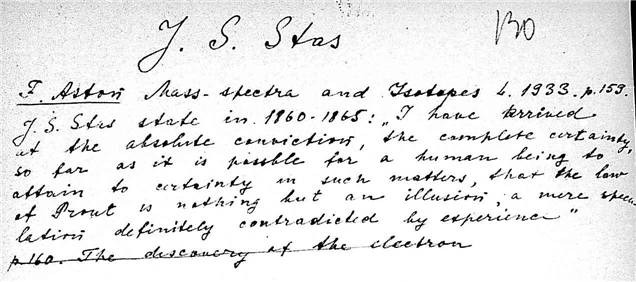 J. S. Stas
130
F. Aston Mass-spectra and Isotopes L. 1933. p. 159.
J. S. Stas state in 1860-1865: „I have arrived
at the absolute conviction, the complete certainty,
so far as it is possible for a human being to
attain to certainty in such matters, that the law
of Prout is nothing but an illusion, a mere specu-
lation definitely contradicted by experience"
p. 160. The discovery of the electron